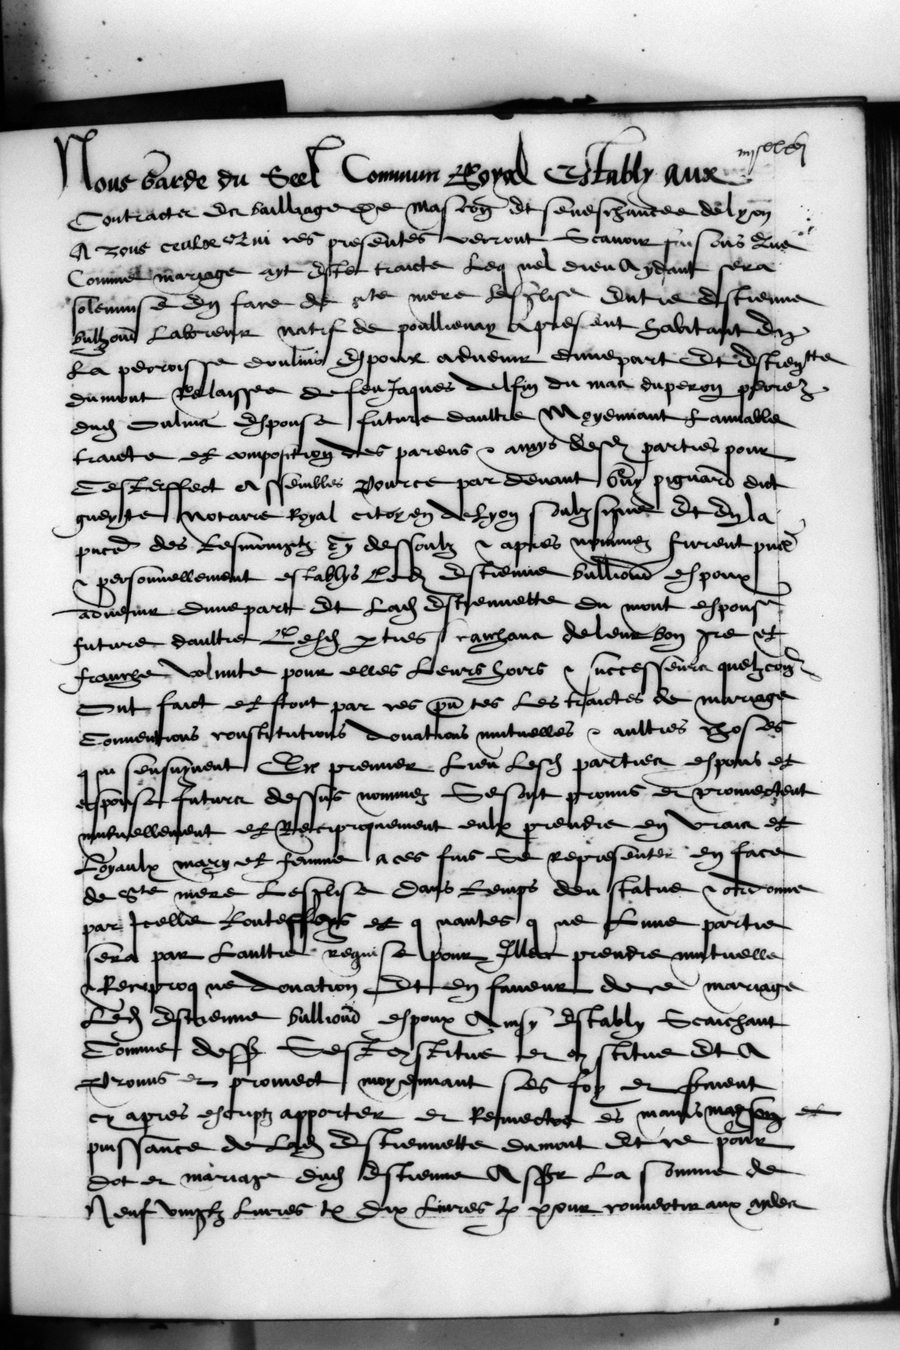 Nous Garde du Seel Commun Royal Estably aux
Contractz des bailliage de Mascon et seneschaucee de lyon
A tous ceulx Qui ces presentes verront Scavoir faisons Que
Comme mariage ayt este traicte Leq uel dieu Aydant sera
solemnise En face de ste mere leglise Entre Estienne
bullioud Laboreur natif de poullienay a present habitant En
La parroisse doulins Espoux advenir dune part Et Estiennette
dumont Relaissee de feu Jaques delfin du mas duperon
dud Oulins Espouse future daultre Moyennant Lamiable
traicte et composition des parens & amys desd parties pour
Cest effect Assembles Pource par devant pignard dict
notaire Royal citoyen de Lyon soubzsigne Et En la
des tesmoingtz Cy dessoubz & apres nommez furent
& personnellement establys Led Estienne bullioud espoux
advenir dune part Et Lad Estiennette du mont espouse
future daultre Lesd pties scaichans de leur bon gre et
franche volunte pour elles Leurs hoirs & successeurs quelzconq
Ont faict et font par ces pntes Les traictes de mariage
Conventions constitutions donations mutuelles & aultres choses
q su sensuyvent En premier Lieu Lesd parties espoux et
espouse futurs dessus nommez Se sont promis et promectent
mutuellement et Reciproquement eulx prendre en vraix et
Loyaulx mary et femme a ces fins Se representer en face
de Ste mere Leglise Dans temps deu statue & ordonne
par Icelle et q uantes q ue Lune partie
sera par Laultre requise pour Illec prendre mutuelle
& Reciproq ue donation Et En faveur de ce mariage
Led Estienne bullioud espoux Ainsy Estably Scaichant
Comme dessus Sest Constitue et constitue Et A
Promis et promect moyennant ses foy et serment
cy apres escriptz apporter et Remectre es mains maison et
puissance de Lad Estiennette dumont Et ce pour
dot et mariage dud Estienne Asscr La somme de
Neuf vingtz Livres tz Dix Livres pour convertir aux